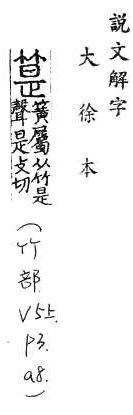 説文解字
大徐本
䈕
簧屬从竹是
聲是支切
(竹部 V5上. p3. a8.)